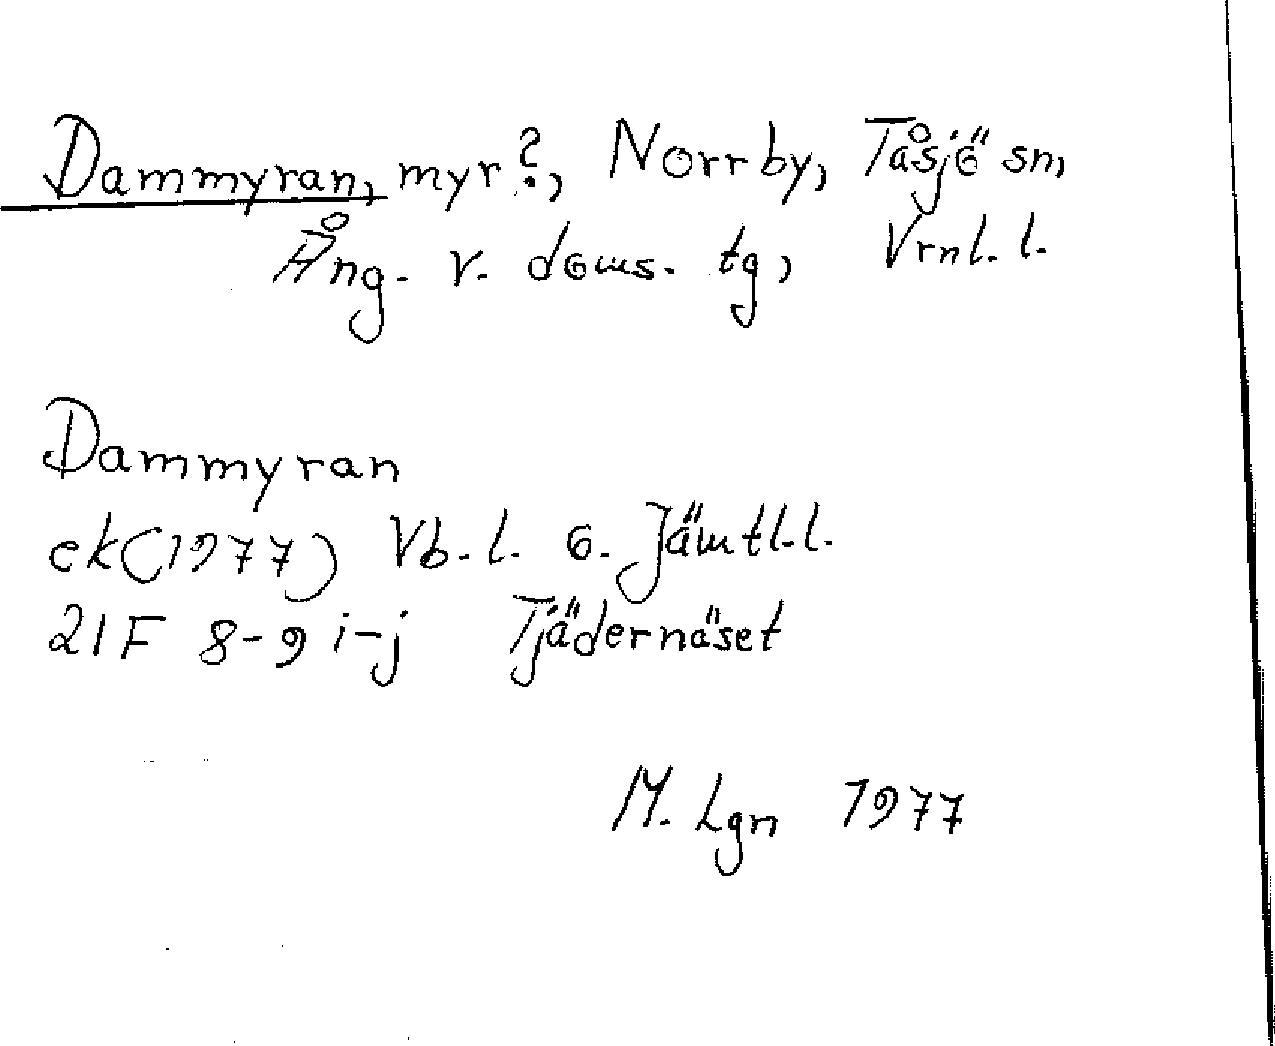 Dammyran, myr?, Norrby, Tåsjö sn,
Ång. v. doms. tg, Vrnl. l.
Dammyran
ek(1977) Vb. l. o. Jämtl. l.
21F 8-9 i-j Tjädernäset
M. Lgn 1977